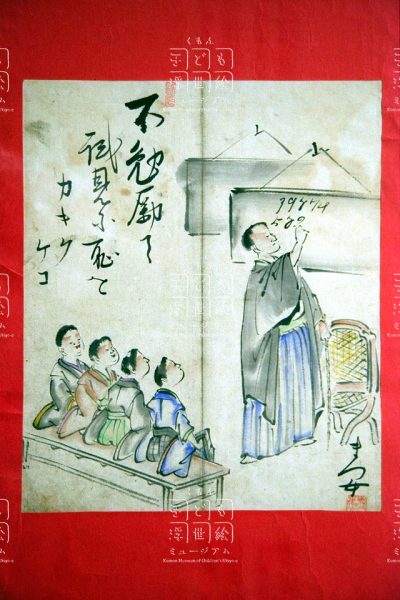 不勉励
試見に恥を
カキク
ケコ
580
まつ女
くもん
子ども
浮世絵
ミュージアム
Kumon Museum of Children's Ukiyo-e